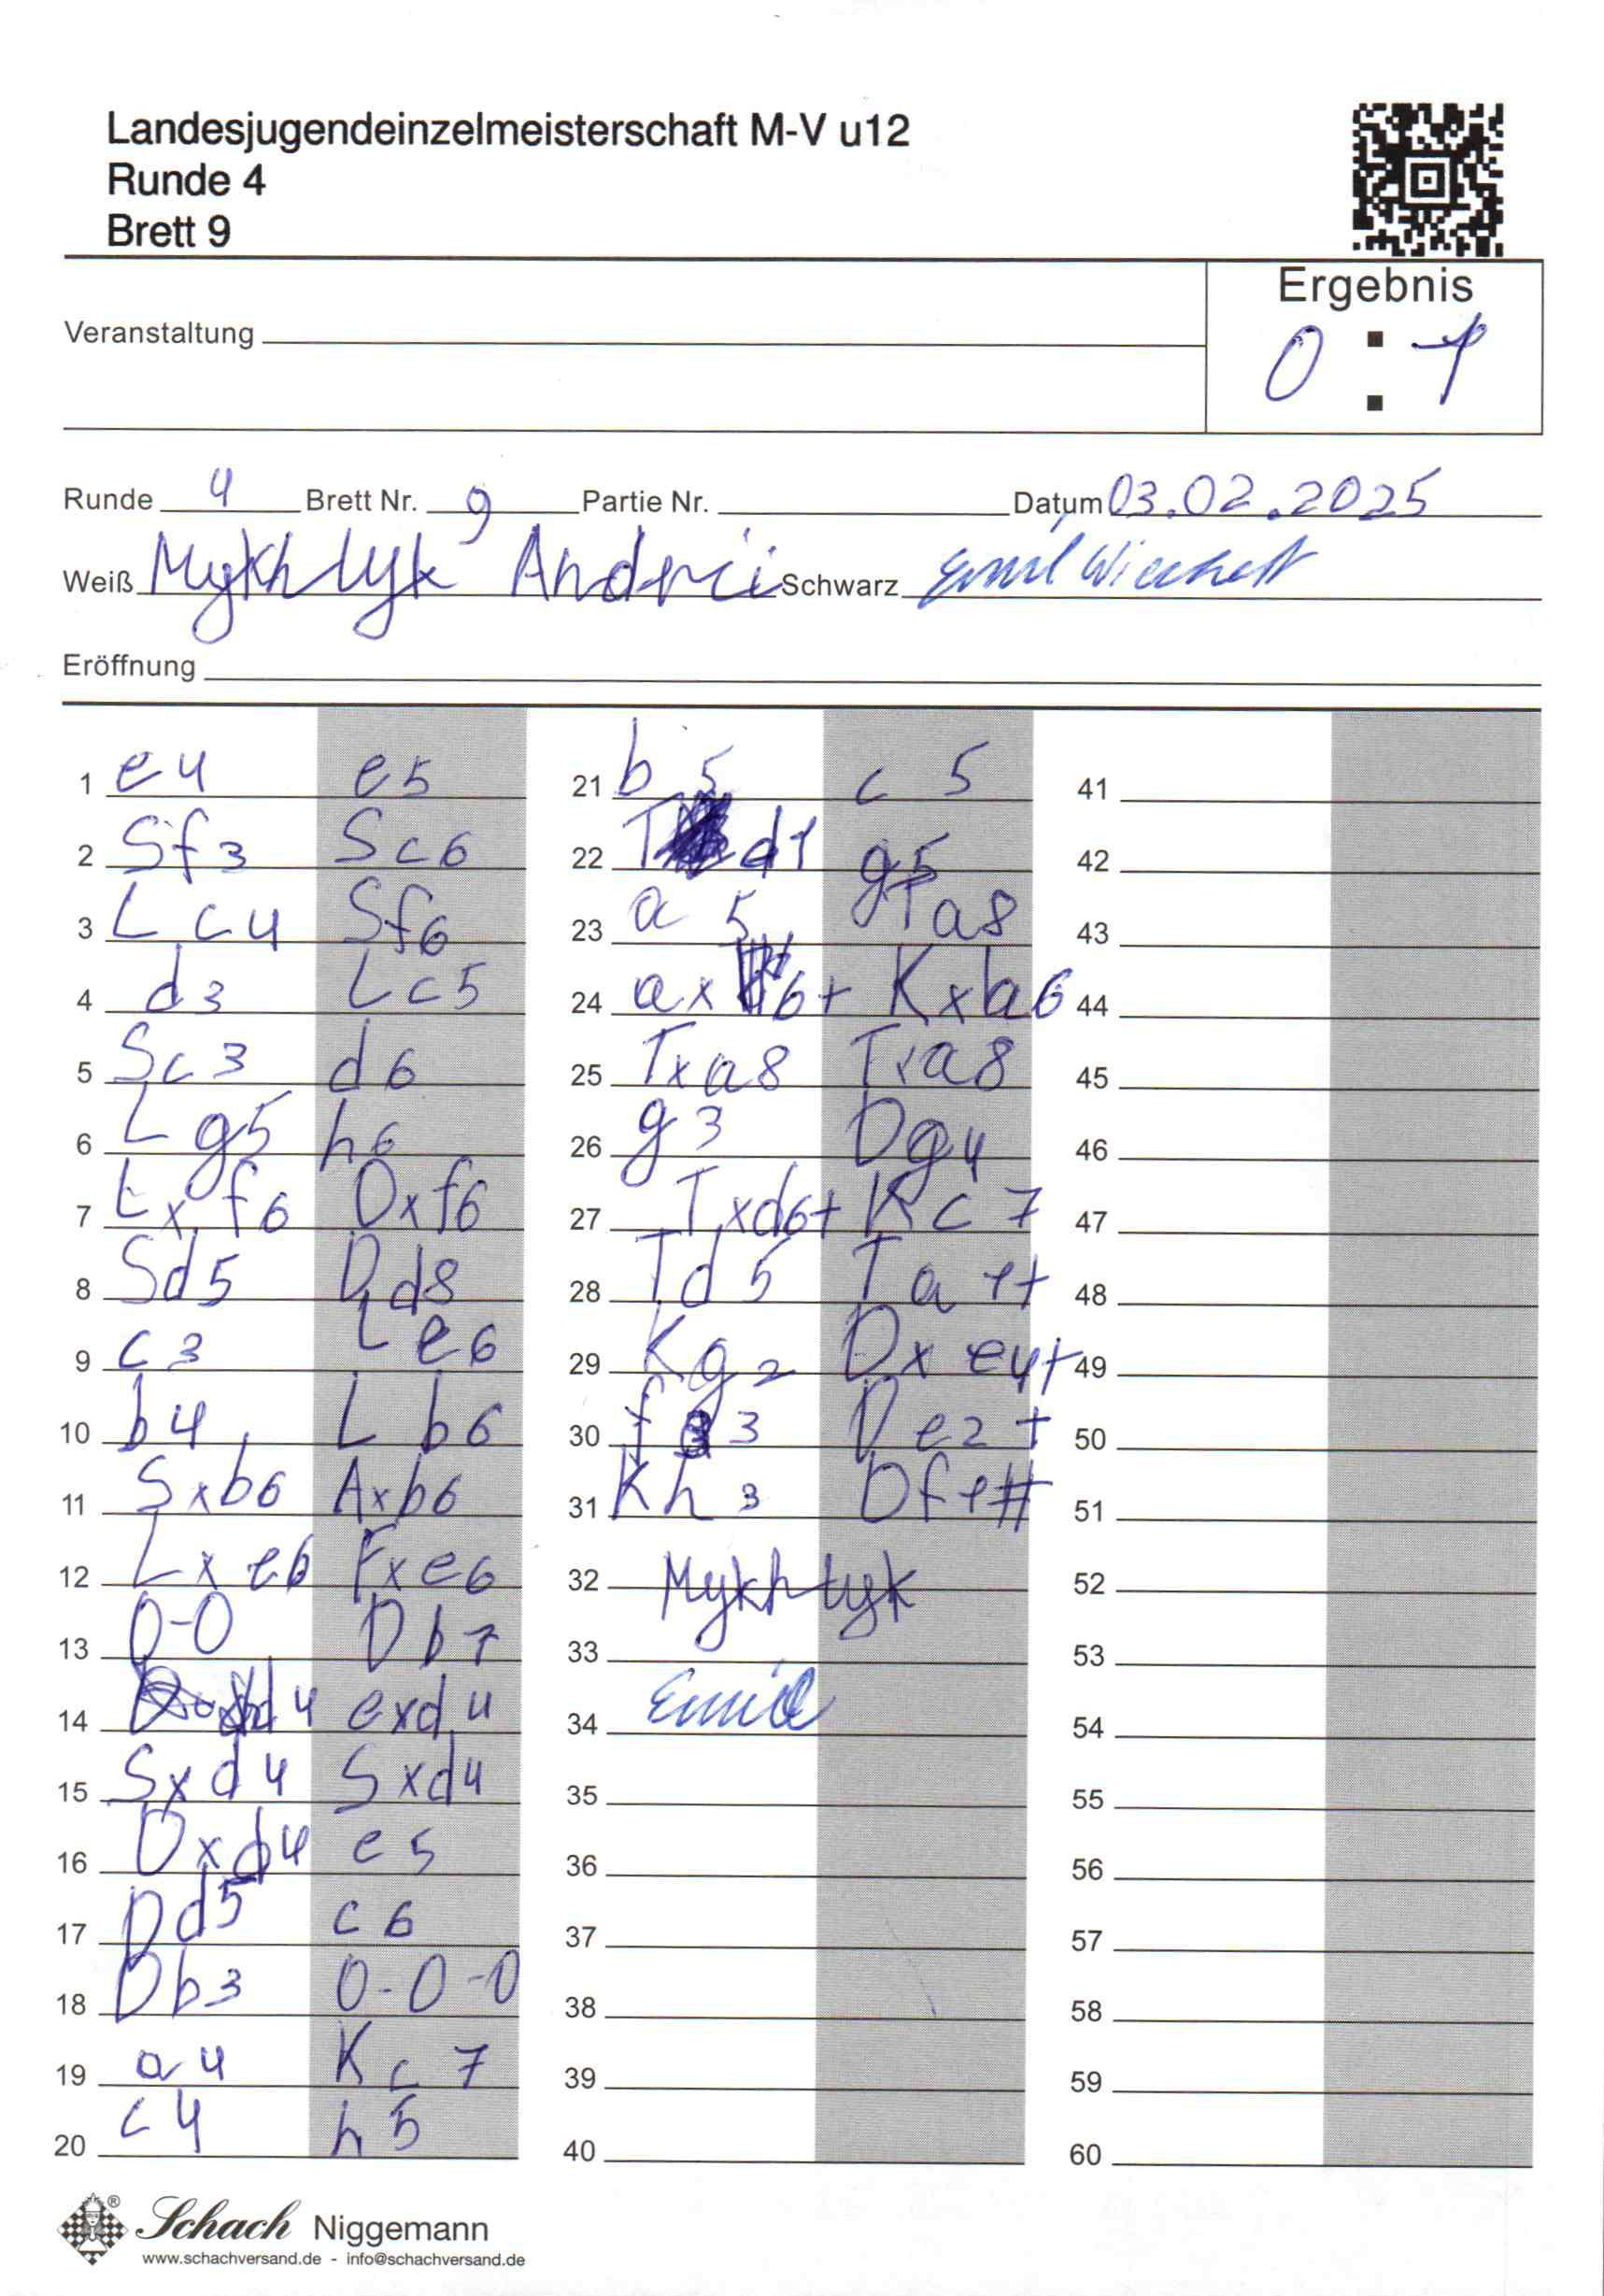 Landesjugendeinzelmeisterschaft M-V u12
Runde 4
Brett 9
Ergebnis
0 : 1
Veranstaltung
Runde 4 Brett Nr. 9 Partie Nr. Datum 03.02.2025
Weiß Mykhlyk Andrii Schwarz Emil
Eröffnung
1 e4 e5
2 Sf3 Sc6
3 Lc4 Sf6
4 d3 Lc5
5 Sc3 d6
6 Lg5 h6
7 Lxf6 Dxf6
8 Sd5 Dd8
9 c3 Le6
10 b4 Lb6
11 Sxb6 Axb6
12 Lxe6 Fxe6
13 0-0 Db7
14 d4 exd4
15 Sxd4 Sxd4
16 Dxd4 e5
17 Dd5 c6
18 Db3 0-0-0
19 a4 Kc7
20 c4 h5
21 b5 c5
22 Td1 g5
23 a5 Ta8
24 axb6+ Kxb6
25 Txa8 Txa8
26 g3 Dg4
27 Txd6+ Kc7
28 Td5 Ta1+
29 Kg2 Dxe4+
30 f3 De2+
31 Kh3 Df1#
32 Mykhlyk
33
34 Emil
35
36
37
38
39
40
41
42
43
44
45
46
47
48
49
50
51
52
53
54
55
56
57
58
59
60
Schach Niggemann
www.schachversand.de - info@schachversand.de